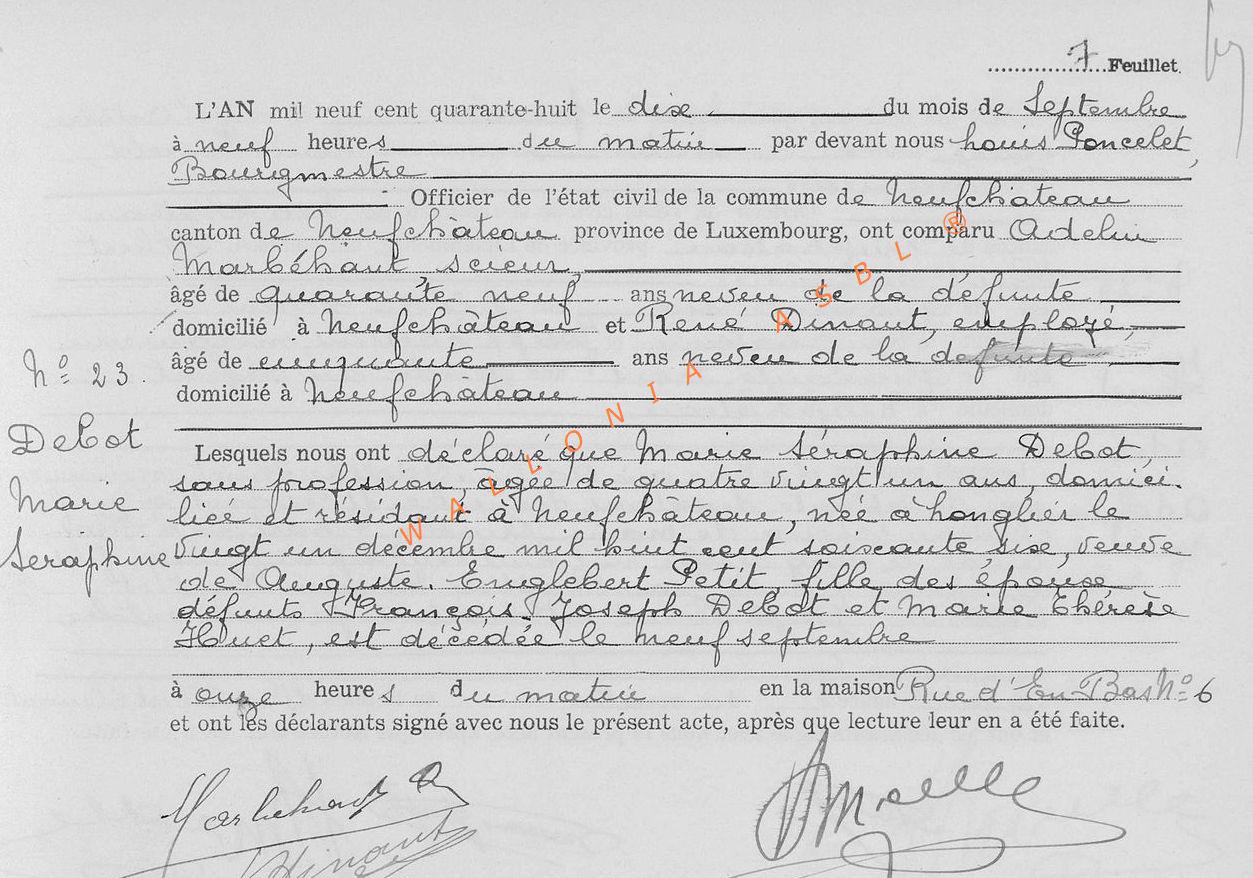 7 Feuillet.
L'AN mil neuf cent quarante-huit le dix du mois de Septembre
à neuf heures du matin par devant nous Louis Poncelet,
Bourgmestre
Officier de l'état civil de la commune de Neufchâteau
canton de Neufchâteau province de Luxembourg, ont comparu Adelin
Marbéhant, scieur,
âgé de quarante neuf ans neveu de la défunte
domicilié à Neufchâteau et René Dinant, employé,
âgé de cinquante ans neveu de la défunte
domicilié à Neufchâteau
N° 23.
Debot
Marie
Seraphine
Lesquels nous ont déclaré que Marie Séraphine Debot,
sans profession, âgée de quatre vingt un ans, domici-
liée et résidant à Neufchâteau, née à Longlier le
vingt un décembre mil huit cent soixante six, veuve
de Auguste-Englebert Petit, fille des époux
défunts François-Joseph Debot et Marie Thérèse
Huet, est décédée le neuf septembre
à onze heures du matin en la maison Rue d'En Bas N° 6
et ont les déclarants signé avec nous le présent acte, après que lecture leur en a été faite.
Marbehant A
Dinant
WALLONIA ASBL ®